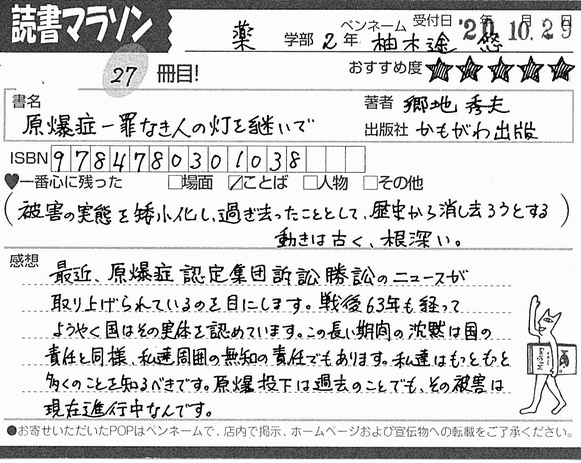 読書マラソン
薬 学部 2年 ペンネーム 柚木遥 悠 受付日 '20年10月29日
27 冊目!
おすすめ度 ★★★★★
書名 原爆症－罪なき人の灯を継いで
著者 郷地 秀夫
出版社 かもがわ出版
ISBN 9784780301038
♥一番心に残った □場面 ☑ことば □人物 □その他
(被害の実態を矮小化し、過ぎ去ったこととして、歴史から消し去ろうとする
動きは古く、根深い。)
感想
最近、原爆症認定集団訴訟勝訴のニュースが
取り上げられているのを目にします。戦後63年も経って
ようやく国はその実体を認めています。この長い期間の沈黙は国の
責任と同様、私達周囲の無知の責任でもあります。私達はもっともっと
多くのことを知るべきです。原爆投下は過去のことでも、その被害は
現在進行中なんです。
Mystery
●お寄せいただいたPOPはペンネームで、店内で掲示、ホームページおよび宣伝物への転載をご了承ください。